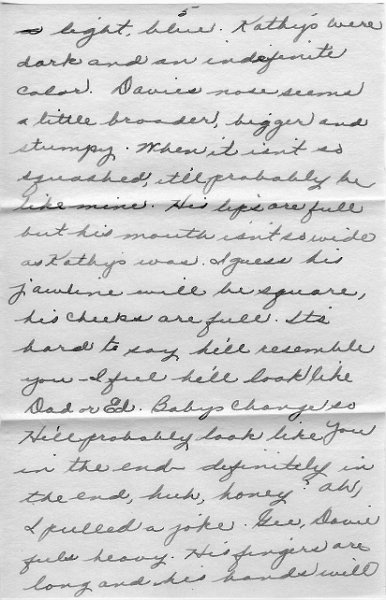 5
light, blue. Kathys were
dark and an indefinite
color. Davies nose seems
a little broader, bigger and
stumpy. When it isn't so
squashed, it'll probably be
like mine. His lips are full
but his mouth isn't so wide
as Kathys was. I guess his
jawline will be square,
his cheeks are full. Its
hard to say he'll resemble
you - I feel he'll look like
Dad or Ed. Babys change so
He'll probably look like you
in the end - definitely in
the end, huh, honey? ah,
I pulled a joke. Gee, Davie
feels heavy. His fingers are
long and his hands will